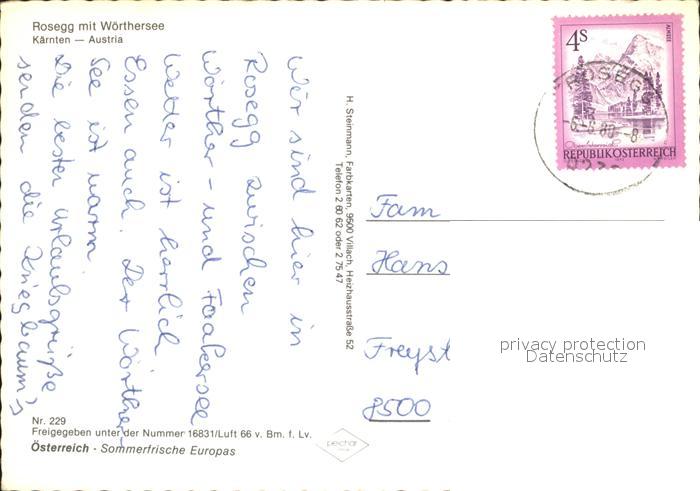 Rosegg mit Wörthersee
Kärnten — Austria
Wir sind hier in
Rosegg zwischen
Wörther- und Faakersee
Wetter ist herrlich
Essen auch. Der Wörther-
See ist warm.
Die besten Urlaubsgrüße
senden die Kriegbaum's
H. Steinmann, Farbkarten, 9500 Villach, Heizhausstraße 52
Telefon 2 60 62 oder 2 75 47
4S
ALMSEE
ROSEGG
REPUBLIK ÖSTERREICH
Fam
Hans
Freyst
8500
privacy protection
Datenschutz
Nr. 229
Freigegeben unter der Nummer 16831/Luft 66 v. Bm. f. Lv.
Österreich - Sommerfrische Europas